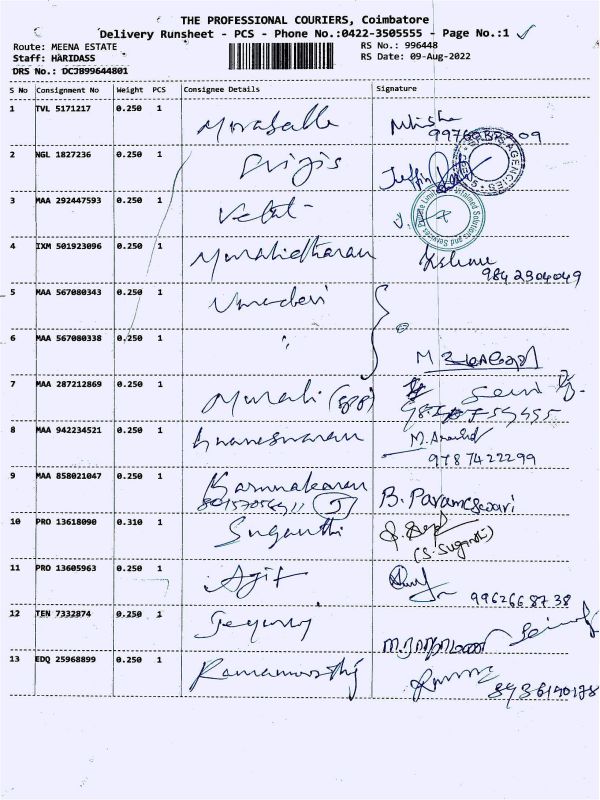 THE PROFESSIONAL COURIERS, Coimbatore
Delivery Runsheet - PCS - Phone No.:0422-3505555 - Page No.:1
Route: MEENA ESTATE
RS No.: 996448
Staff: HARIDASS
RS Date: 09-Aug-2022
DRS No.: DCJB99644801
S No Consignment No Weight PCS Consignee Details Signature
1 TVL 5171217 0.250 1
2 NGL 1827236 0.250 1
3 MAA 292447593 0.250 1
4 IXM 501923096 0.250 1 Muralidharan
9842304049
5 MAA 567080343 0.250 1 Umadevi
6 MAA 567080338 0.250 1 "
7 MAA 287212869 0.250 1 Murali
8 MAA 942234521 0.250 1 Gnaneswaran
9787422299
9 MAA 858021047 0.250 1 Karunakaran B. Parameswari
10 PRO 13618090 0.310 1 Suganthi
(S. Suganthi)
11 PRO 13605963 0.250 1 Ajit
9962668738
12 TEN 7332874 0.250 1
13 EDQ 25968899 0.250 1 Ramamoorthy